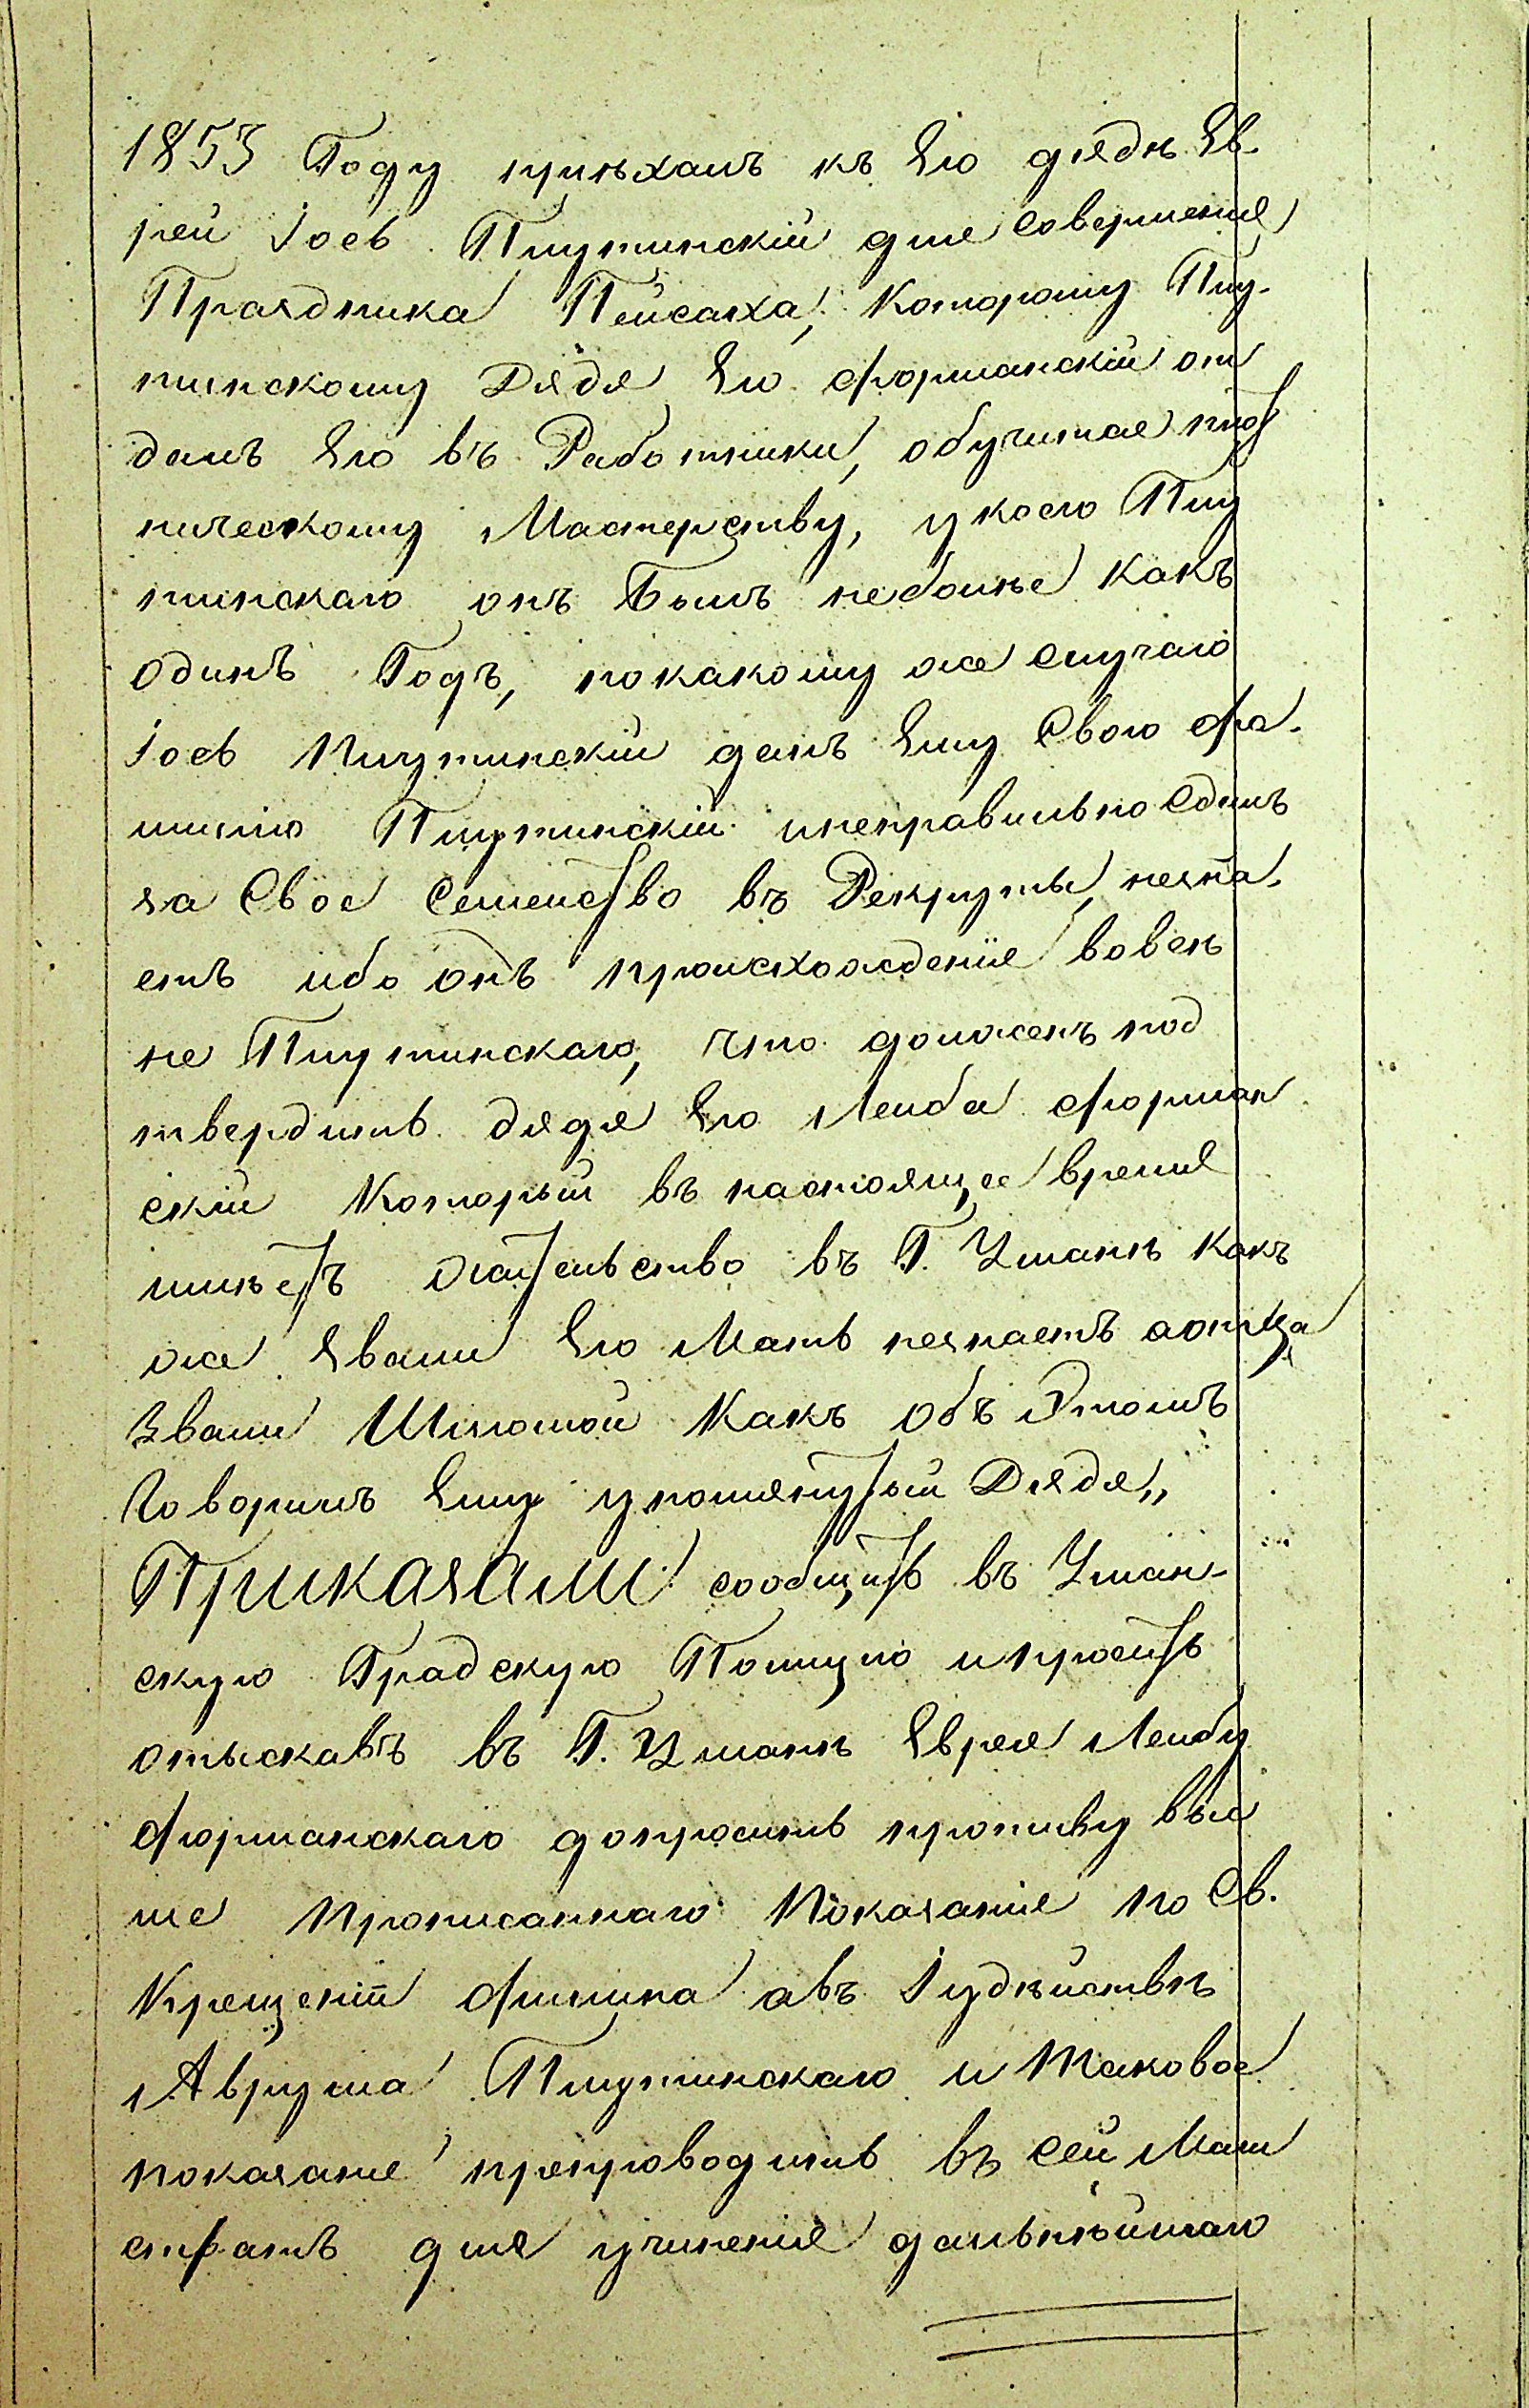 1853 Году пріѣхалъ къ Его дядѣ Ев-
рей Іось Плутинскій для совершенія
Праздника Пейсаха, Которому Плу-
тинскому Дядя Его Форманскій от
далъ Его въ Работники, обучится
ническому Мастерству, у коего Плу
тинскаго онъ Былъ неболѣе какъ
одинъ Годъ, покакому же случаю
Іось Плутинскій далъ Ему Свою фа-
милію Плутинскій инеправильно Сдалъ
за Свое Семейство въ Рекруты, незна-
етъ ибо онъ происхожденіе вовсѣ
не Плутинскаго, что долженъ под
твердить дядя Его Лейба Форман
скій Который въ настоящее время
имѣетъ жительство въ Г. Уманѣ какъ
же Звали Его Мать незнаетъ аотца
Звали Шлиомой Какъ объ Этомъ
Говорилъ Ему упомянутый Дядя„
Приказали сообщить въ Уман-
скую Градскую Полицію ипросить
отыскавъ въ Г. Уманѣ Еврея Лейбу
Форманскаго допросить противу вы
ше прописаннаго Показанія по Св.
Крещеніи Филипа авъ Іудѣйствѣ
Аврума Плутинскаго и Таковое
показаніе препроводить въ сей Маги
стратъ для учиненія дальнѣйшаго